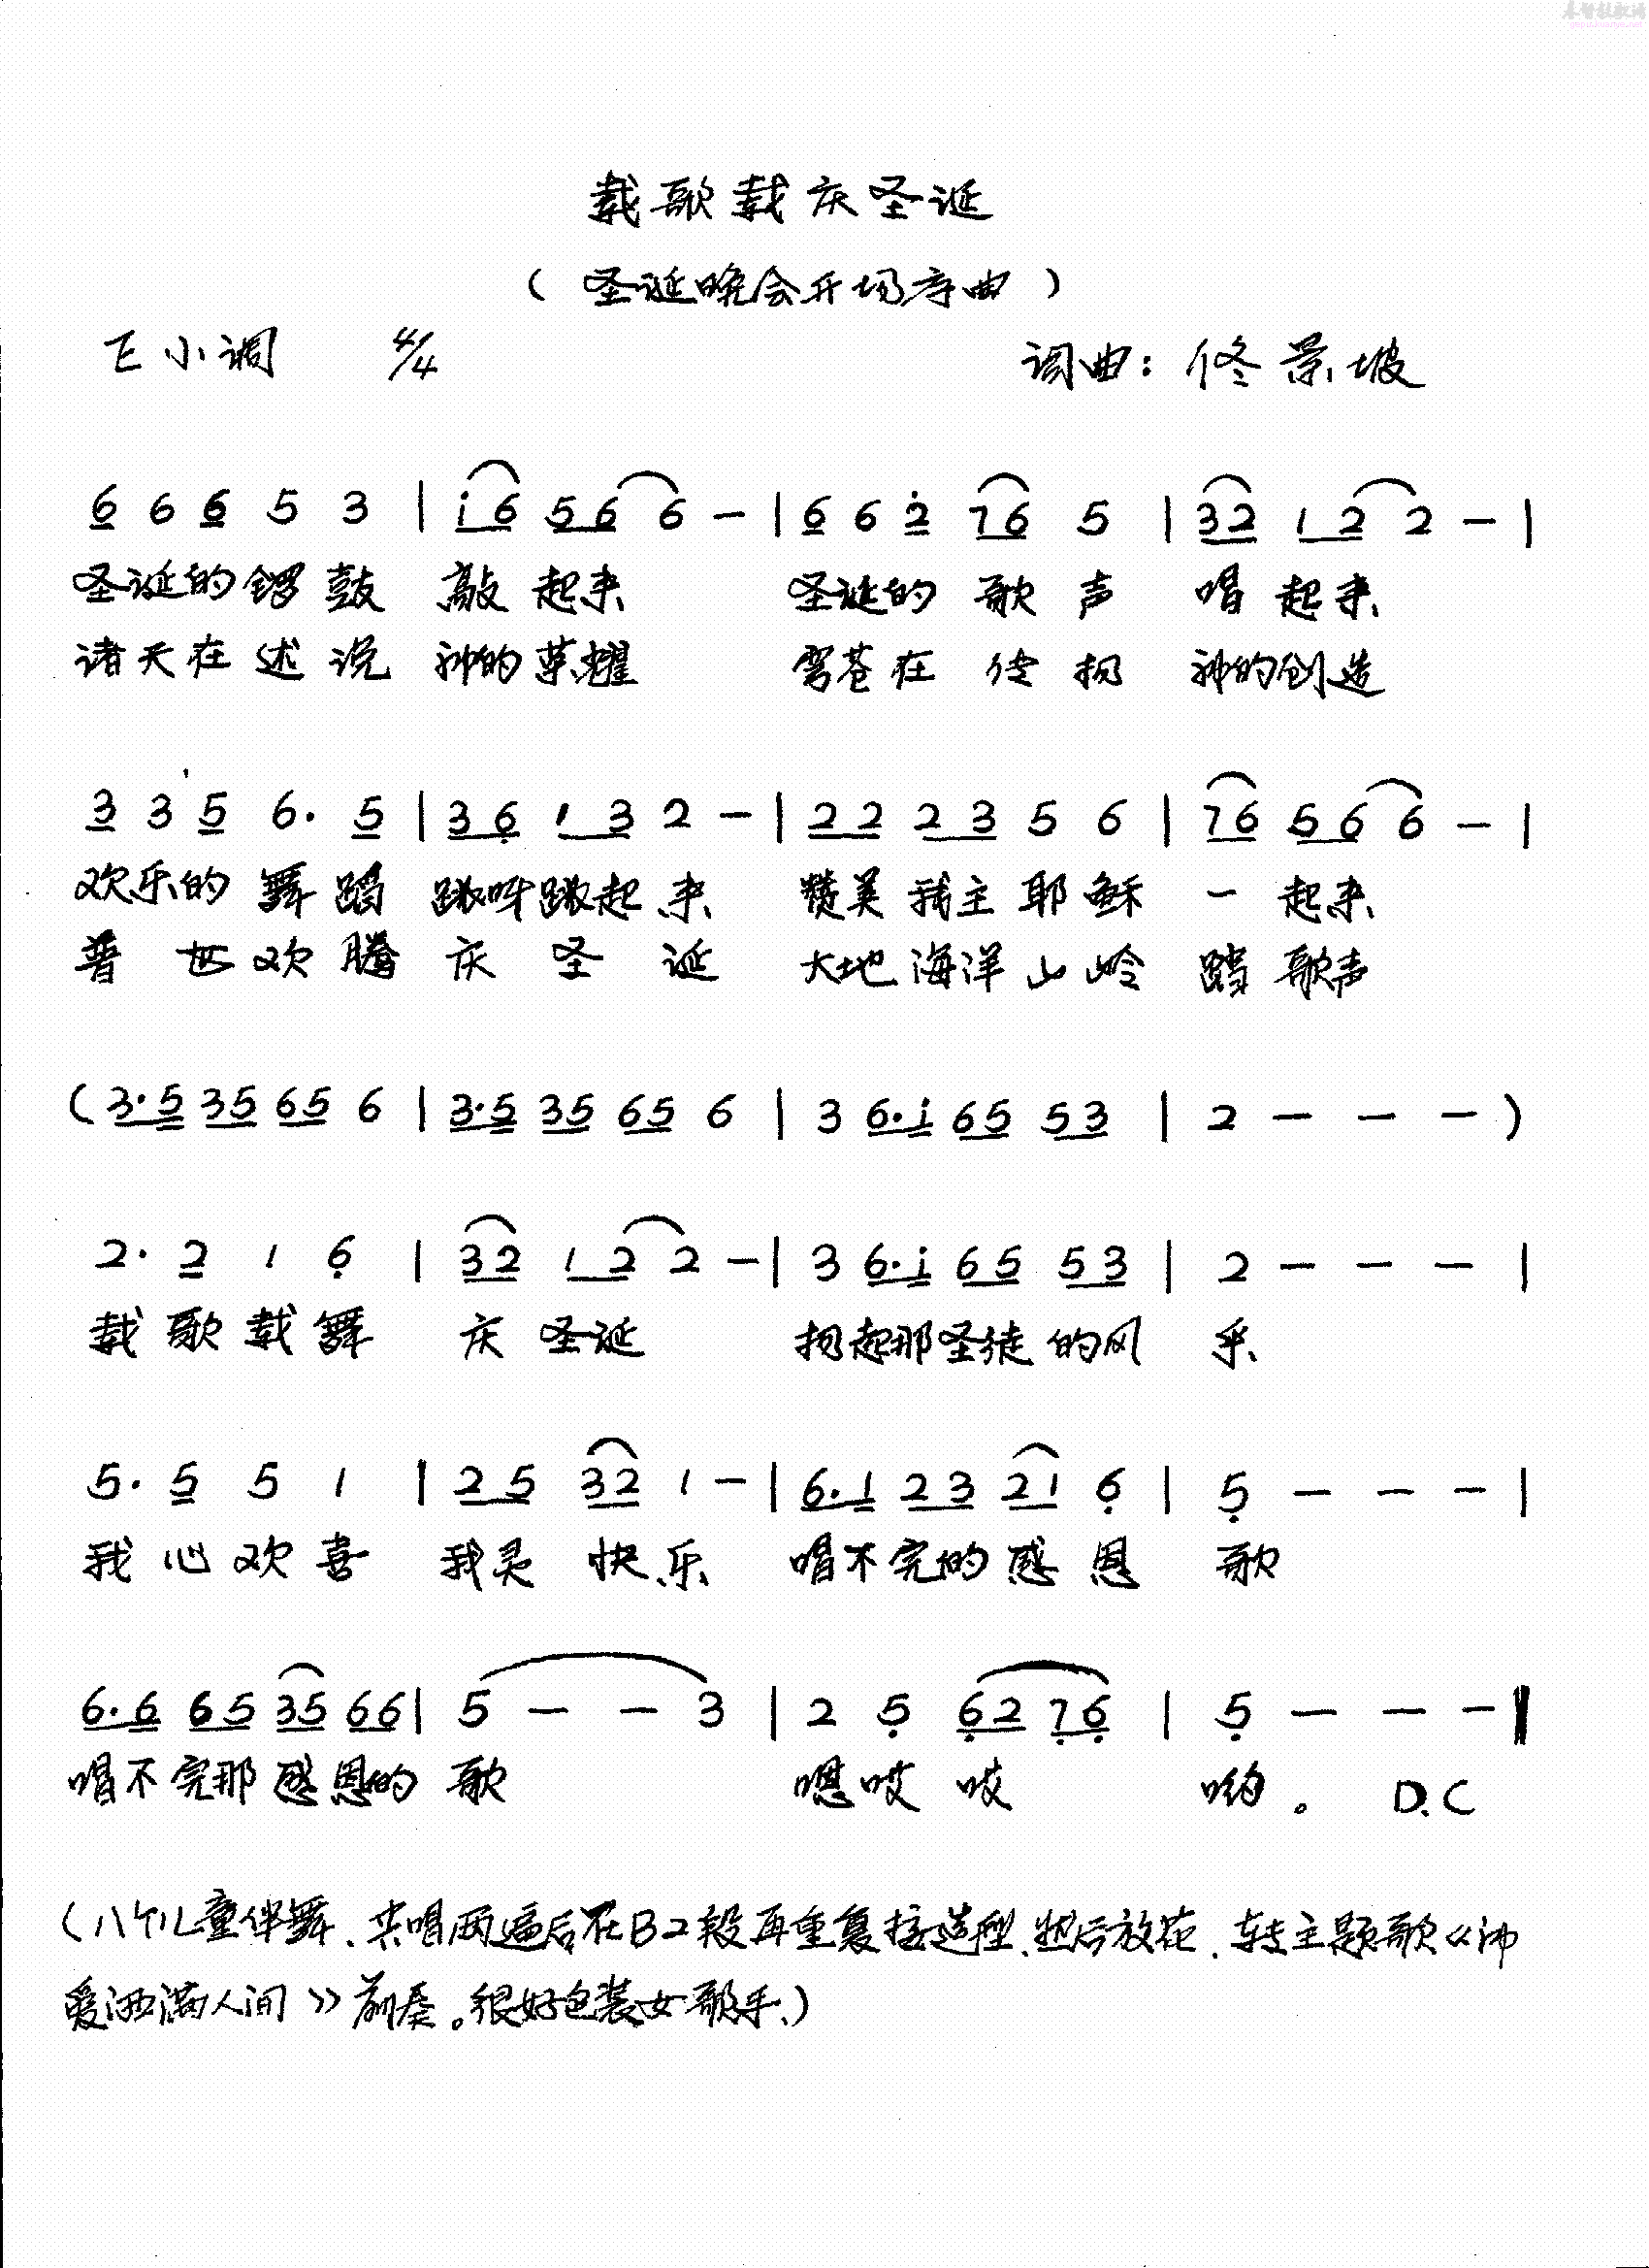 基督教歌谱
载歌载庆圣诞
（圣诞晚会开场序曲）
E小调 4/4 词曲：佟景坡
6 6 6 5 3 | i 6 5 6 6 – | 6 6 2 7 6 5 | 3 2 1 2 2 – |
圣诞的锣鼓 敲起来 圣诞的歌声 唱起来
诸天在述说 神的荣耀 穹苍在传扬 神的创造
3 3 5 6. 5 | 3 6 1 3 2 – | 2 2 2 3 5 6 | 7 6 5 6 6 – |
欢乐的舞蹈 跳呀跳起来 赞美我主耶稣 一起来
普世欢腾 庆圣诞 大地海洋山岭 踏歌声
( 3.5 35 65 6 | 3.5 35 65 6 | 3 6.i 65 53 | 2 – – – )
2. 2 1 6 | 32 1 2 2 – | 3 6.i 65 53 | 2 – – – |
载歌载舞 庆圣诞 扬起那圣徒的风 采
5. 5 5 1 | 25 32 1 – | 6.1 23 21 6 | 5 – – – |
我心欢喜 我灵快乐 唱不完的感恩 歌
6.6 65 35 66 | 5 – – 3 | 2 5 62 76 | 5 – – – ‖
唱不完那感恩的 歌 嗯哎哎 哟。 D.C
（八个儿童伴舞、共唱两遍后在B2段再重复接造型、然后放花、转主题歌《佛
爱洒满人间》前奏。很好包装女歌手、）